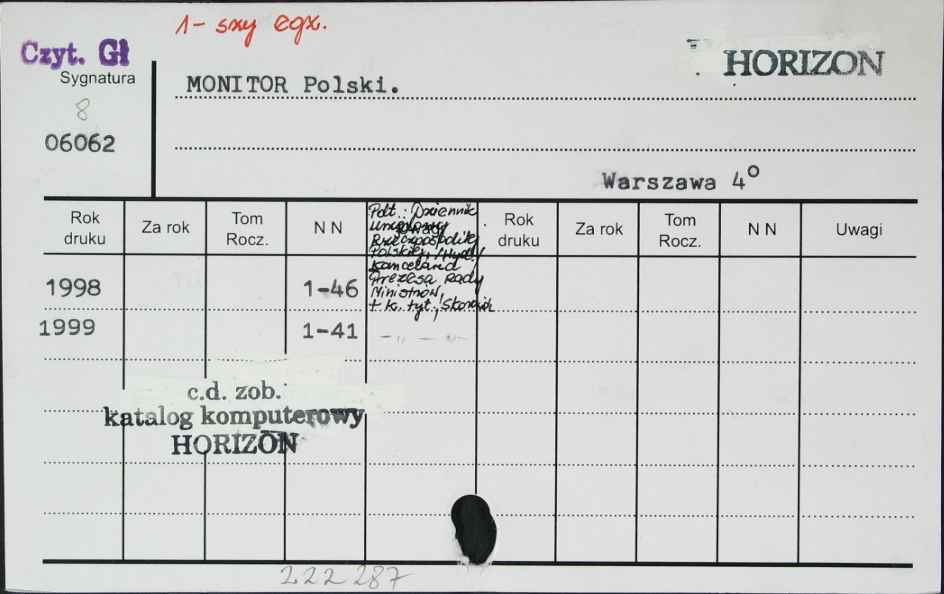 1- szy egz.
Czyt. Gł
HORIZON
Sygnatura
MONITOR Polski.
8
06062
Warszawa 4°
Rok druku
Za rok
Tom Rocz.
N N
Uwagi
Rok druku
Za rok
Tom Rocz.
N N
Uwagi
Podt.: Dziennik
Urzędowy
Rzeczpospolitej
Polskiej, /Wyd./
Kancelaria
Prezesa Rady
Ministrów,
+ k. tyt., Skorowidz
1998 1-46
1999 1-41 - „ - „ -
c.d. zob.
katalog komputerowy
HORIZON
222 287